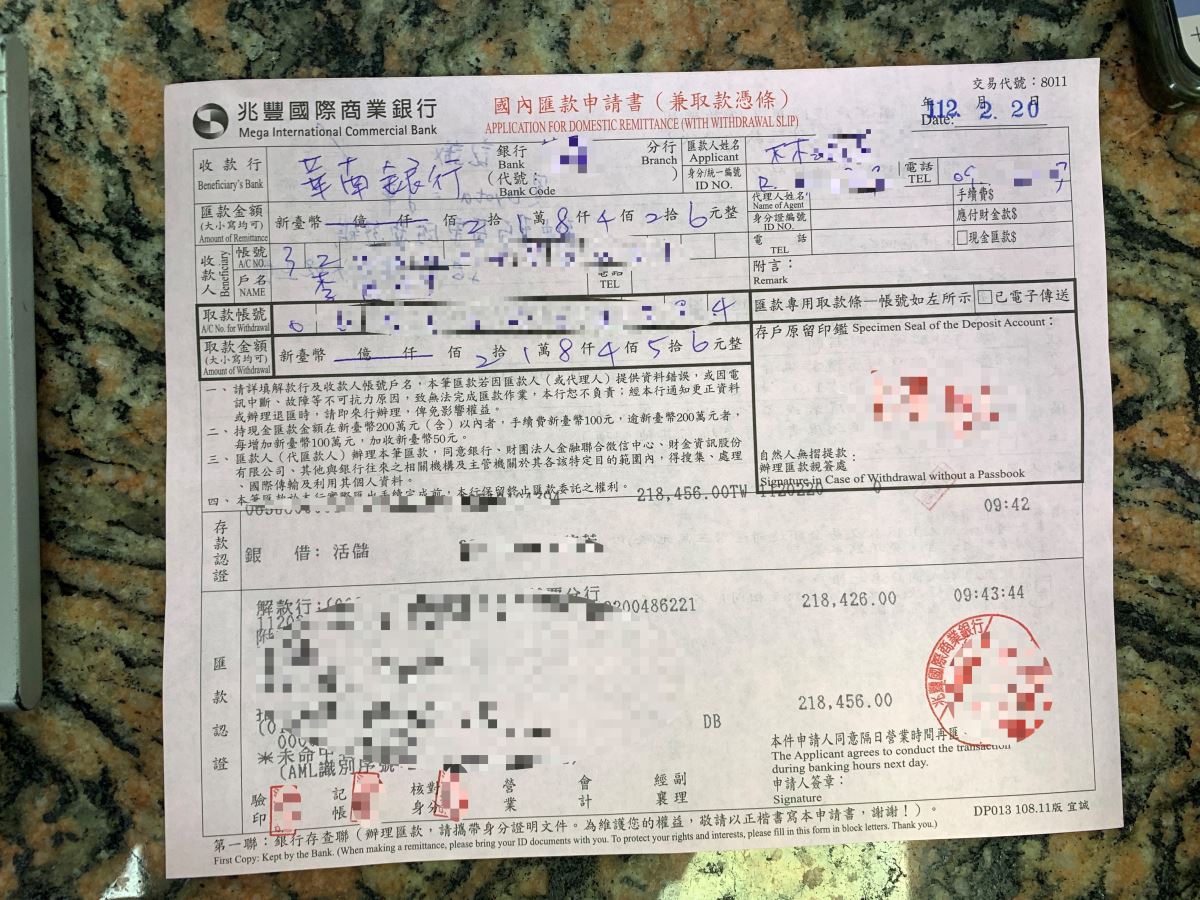 交易代號：8011
兆豐國際商業銀行
Mega International Commercial Bank
國內匯款申請書（兼取款憑條）
APPLICATION FOR DOMESTIC REMITTANCE (WITH WITHDRAWAL SLIP)
年 月 日
Date:
112. 2. 20
收款行
Beneficiary's Bank
華南銀行
銀行
Bank
(代號：
Bank Code
分行
Branch
)
匯款人姓名
Applicant
林
身分/統一編號
ID NO.
電話
TEL
匯款金額
(大小寫均可)
Amount of Remittance
新臺幣 億 仟 佰 2 拾 1 萬 8 仟 4 佰 2 拾 6 元整
代理人姓名
Name of Agent
身分證編號
ID NO.
電 話
TEL
手續費$
應付財金款$
現金匯款$
收款人
Beneficiary
帳號
A/C NO.
3 2
戶名
NAME
李
電話
TEL
附言：
Remark
取款帳號
A/C No. for Withdrawal
0
4
匯款專用取款條—帳號如左所示
已電子傳送
取款金額
(大小寫均可)
Amount of Withdrawal
新臺幣 億 仟 佰 2 拾 1 萬 8 仟 4 佰 5 拾 6 元整
存戶原留印鑑 Specimen Seal of the Deposit Account：
一、請詳填解款行及收款人帳號戶名，本筆匯款若因匯款人（或代理人）提供資料錯誤，或因電
訊中斷、故障等不可抗力原因，致無法完成匯款作業，本行恕不負責；經本行通知更正資料
或辦理退匯時，請即來行辦理，俾免影響權益。
二、持現金匯款金額在新臺幣200萬元（含）以內者，手續費新臺幣100元，逾新臺幣200萬元者，
每增加新臺幣100萬元，加收新臺幣50元。
三、匯款人（代匯款人）辦理本筆匯款，同意銀行、財團法人金融聯合徵信中心、財金資訊股份
有限公司、其他與銀行往來之相關機構及主管機關於其各該特定目的範圍內，得搜集、處理
、國際傳輸及利用其個人資料。
四、本筆匯款於本行實際匯出手續完成前，本行保留終止匯款委託之權利。
自然人無摺提款：
辦理匯款親簽處
Signature in Case of Withdrawal without a Passbook
218,456.00TW 1120220
09:42
存款認證
銀 借：活儲
匯款認證
解款行：
分行
200486221
218,426.00
09:43:44
附
兆豐國際商業銀行
218,456.00
DB
＊未命中
(AML識別序號
本件申請人同意隔日營業時間再匯。
The Applicant agrees to conduct the transaction
during banking hours next day.
申請人簽章：
Signature
驗印
記帳
核對身分
營業
會計
經副襄理
第一聯：銀行存查聯（辦理匯款，請攜帶身分證明文件。為維護您的權益，敬請以正楷書寫本申請書，謝謝！）。
DP013 108.11版 宜誠
First Copy: Kept by the Bank. (When making a remittance, please bring your ID documents with you. To protect your rights and interests, please fill in this form in block letters. Thank you.)